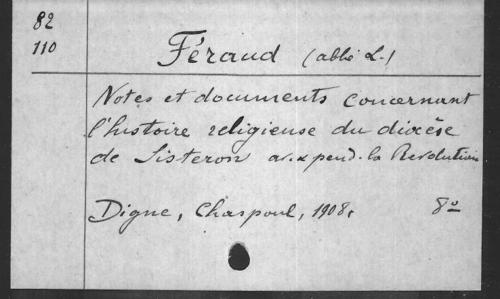 82
110
Féraud (abbé L.)
Notes et documents concernant
l'histoire religieuse du diocèse
de Sisteron av. & pend. la Révolution
Digne, Chaspoul, 1908. 8º